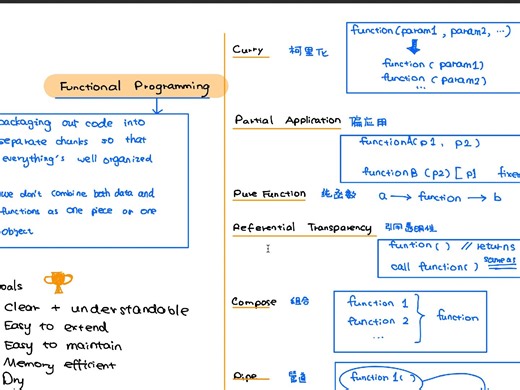 Functional Programming
packaging our code into
separate chunks so that
everything's well organized
we don't combine both data and
functions as one piece or one
object
Goals
Clear + understandable
Easy to extend
Easy to maintain
Memory efficient
Dry
Curry 柯里化
function(param1, param2, ...)
function (param1)
function (param2)
Partial Application 偏应用
functionA(p1, p2)
functionB (p2) [ p1 fixed
Pure Function 纯函数
a → function → b
Referential Transparency 引用透明性
funtion( ) // returns
call function( ) same as
Compose 组合
function 1
function 2
...
function
Pipe 管道
function 1( )